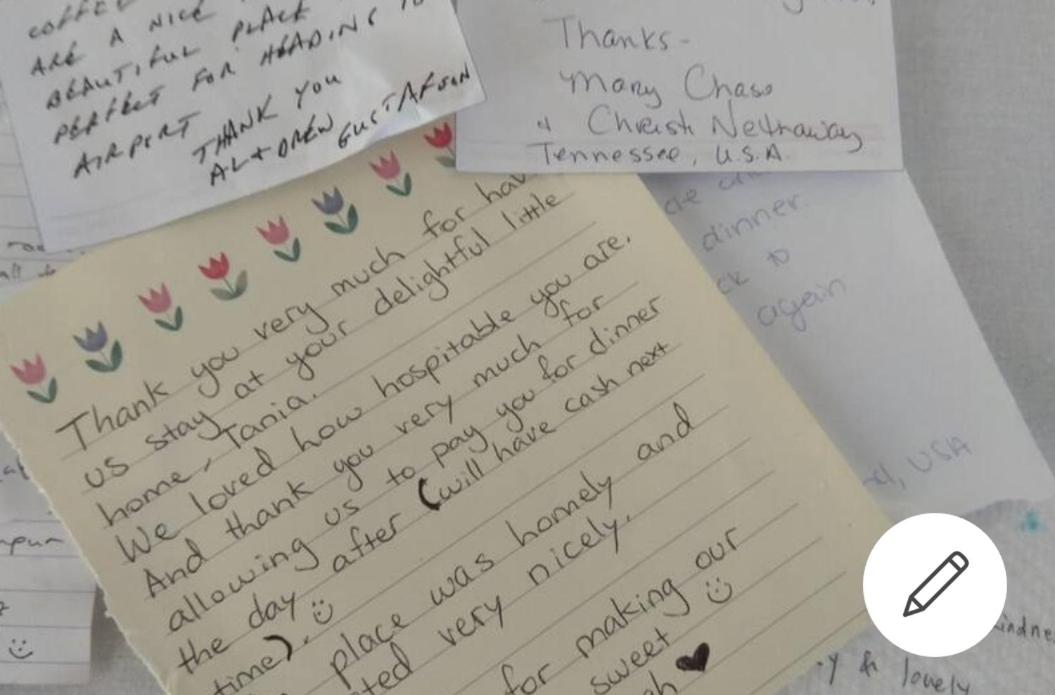 COFFEE
ARE A NICE
BEAUTIFUL PLACE
PERFECT FOR HEADING TO
AIRPORT
THANK YOU
AL + DREW GUSTAFSON
Thanks-
Mary Chase
& Christi Nethaway
Tennessee, U.S.A.
dinner.
to
again
USA
Thank you very much for hav
us stay at your delightful little
home, Tania.
We loved how hospitable you are.
And thank you very much for
allowing us to pay you for dinner
the day after (will have cash next
time). :)
place was homely and
ted very nicely.
for making our
sweet :)
♥
pur
:)
kindne
y & lovely